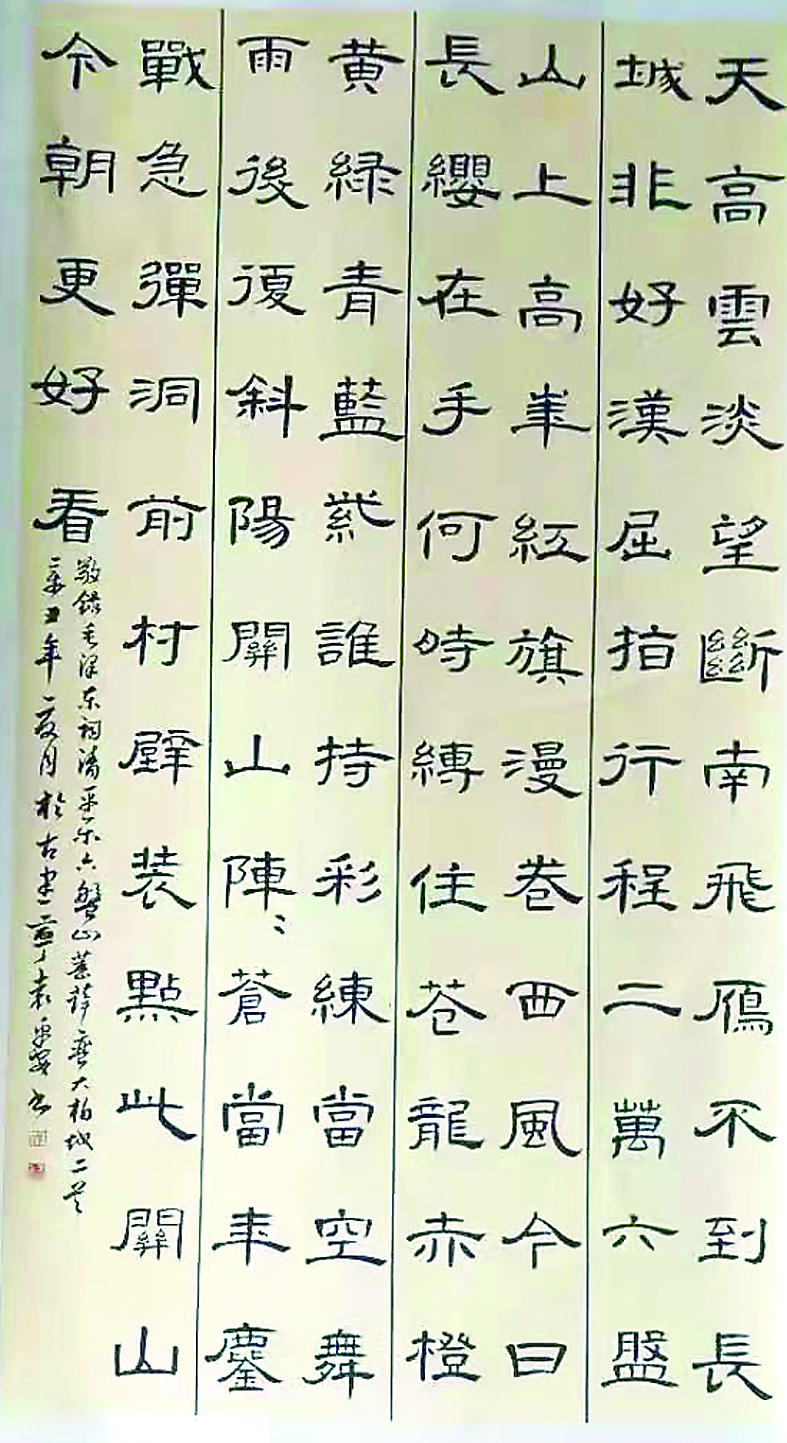 天高雲淡望斷南飛鴈不到長
城非好漢屈指行程二萬六盤
山上高峯紅旗漫卷西風今日
長纓在手何時縛住苍龍赤橙
黄綠青藍紫誰持彩練當空舞
雨後復斜陽關山陣〻蒼當年鏖
戰急彈洞前村壁装點此關山
今朝更好看
敬錄毛泽东詞清平乐六盤山菩薩蛮大柏地二首
辛丑年二月於古 袁 书